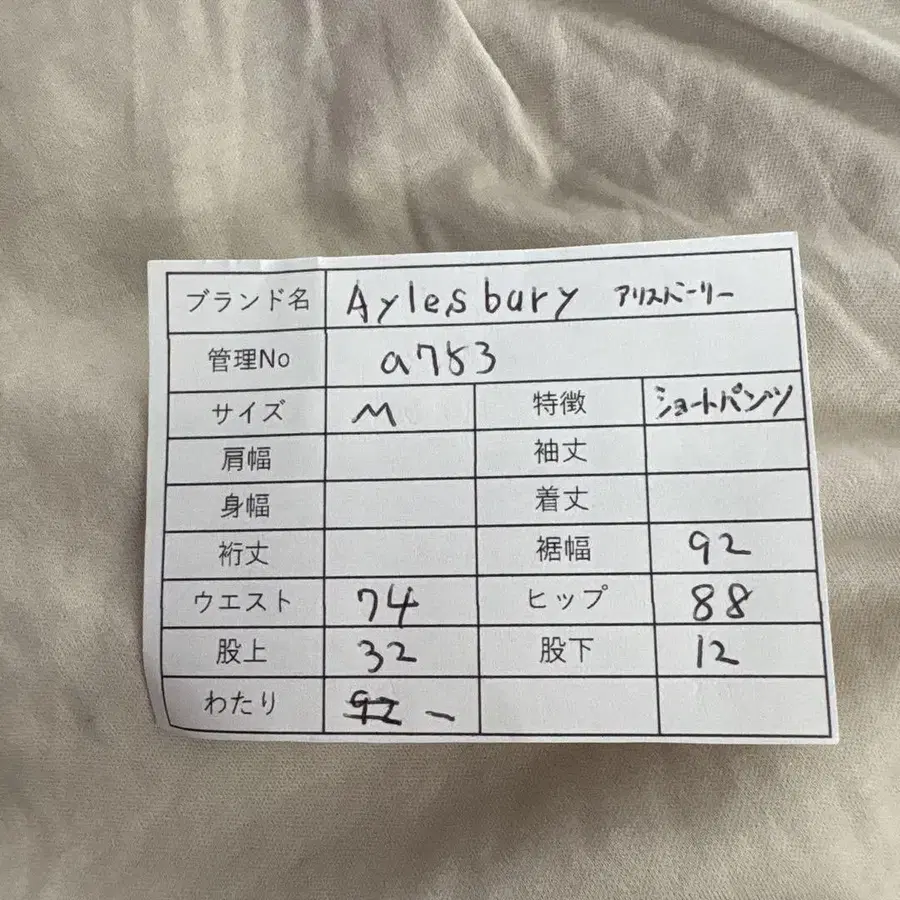 ブランド名 Aylesbury アリスバーリー
管理No a783
サイズ M 特徴 ショートパンツ
肩幅 袖丈
身幅 着丈
裄丈 裾幅 92
ウエスト 74 ヒップ 88
股上 32 股下 12
わたり 92 –